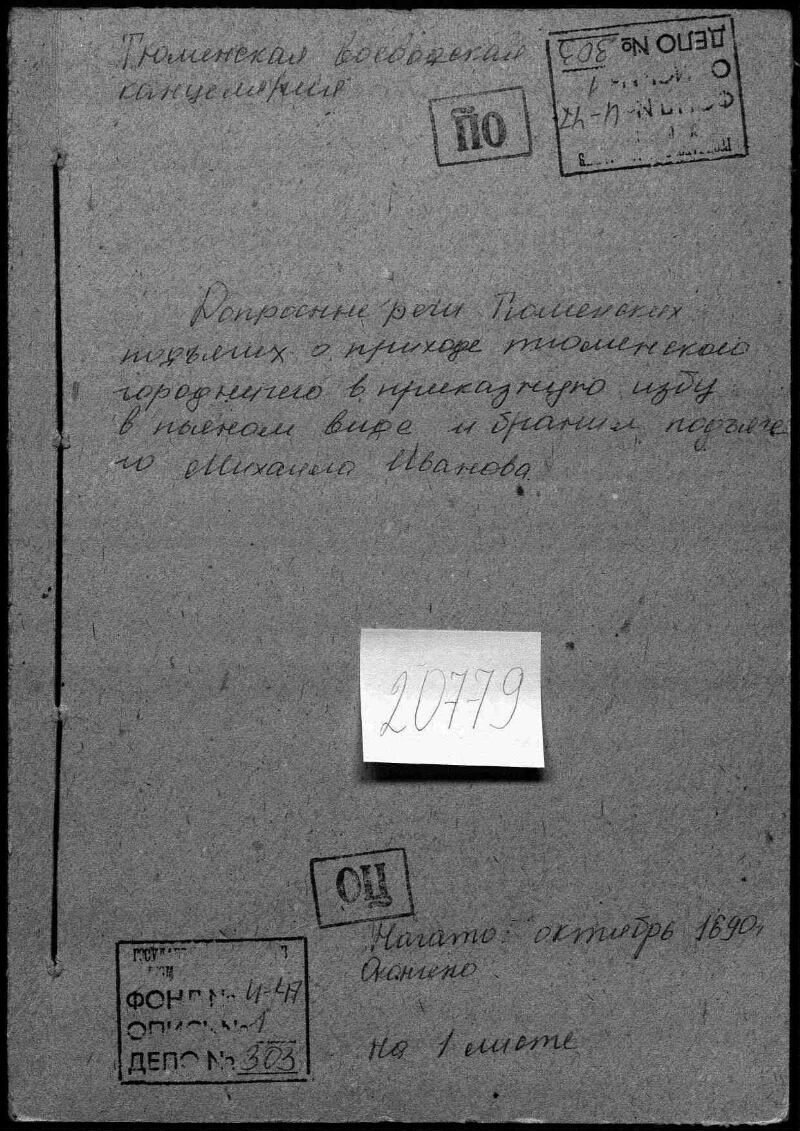 Тюменская воеводская
канцелярия
ДЕЛО № 303
О 1
Ф И-47
ОЦ
Допросные речи Тюменских
подъячих о приходе тюменского
городничего в приказную избу
в пьяном виде и бранил подъяче
го Михаила Иванова.
20779
ОЦ
Начато октябрь 1690г
Окончено
на 1 листе
ФОНД № И-47
ОПИСЬ № 1
ДЕЛО № 303